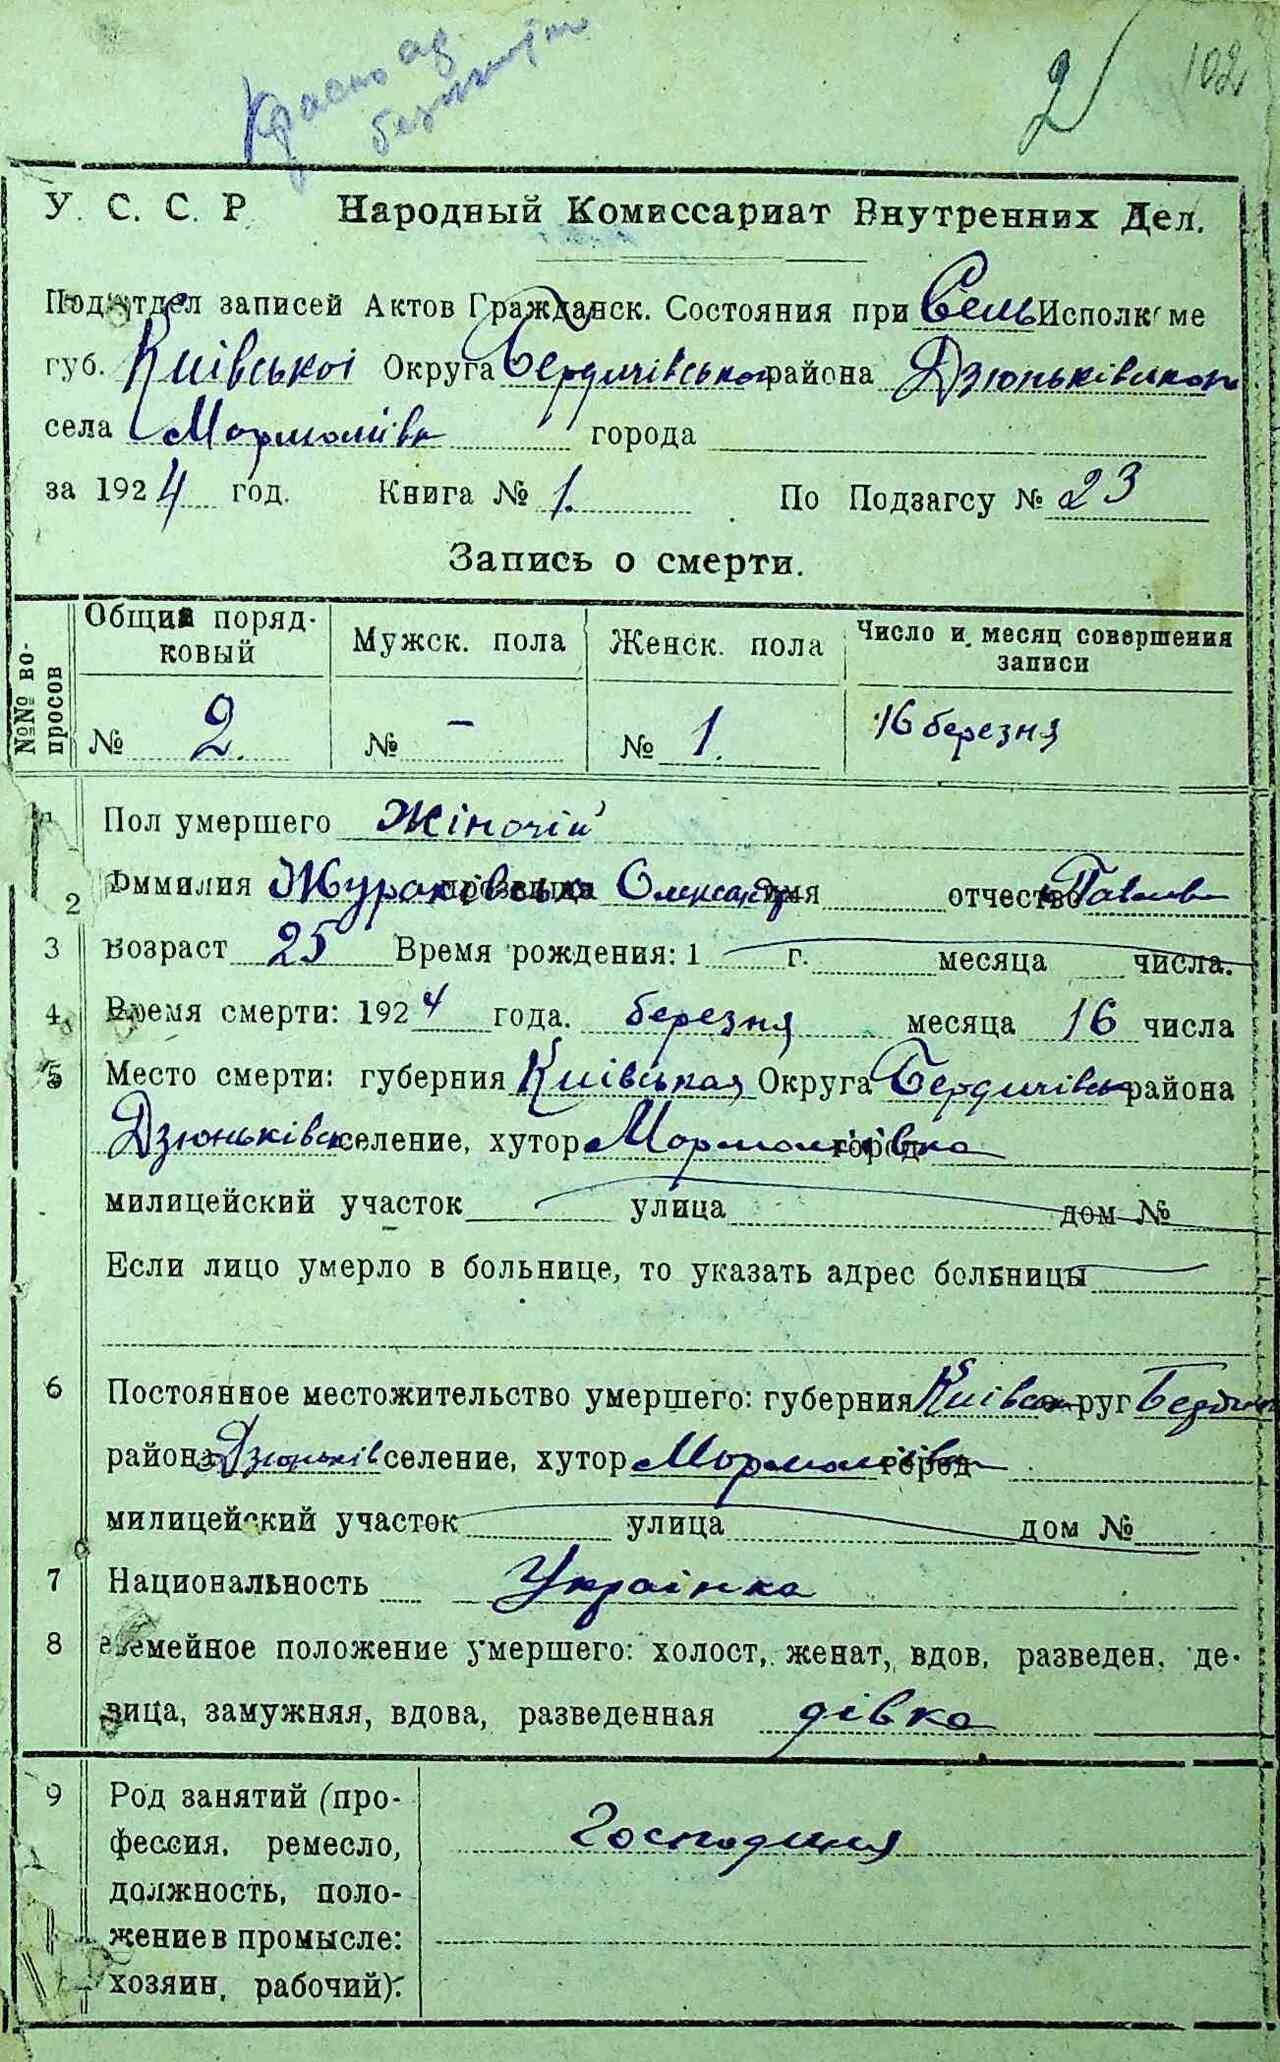 2 102
У. С. С. Р. Народный Комиссариат Внутренних Дел.
Подотдел записей Актов Гражданск. Состояния при Сель Исполкоме
губ. Київської Округа Бердичівського района Дзюньківського
села Мормоліївка города
за 1924 год. Книга № 1. По Подзагсу № 23
Запись о смерти.
№№ вопросов Общий поряд- Мужск. пола Женск. пола Число и месяц совершения
ковый записи
№ 2. № - № 1. 16 березня
1 Пол умершего Жіночій
2 Фммилия прозвище Олександра имя отчество Павлова
3 Возраст 25 Время рождения: 1 г. месяца числа.
4 Время смерти: 1924 года. березня месяца 16 числа
5 Место смерти: губерния Київськая Округа Бердичівськ района
Дзюньківськ селение, хутор Мормоліївка город
милицейский участок улица дом №
Если лицо умерло в больнице, то указать адрес болбницы
6 Постоянное местожительство умершего: губерния Київськ округ Бердич
района Дзюньків селение, хутор Мормоліївка город
милицейский участок улица дом №
7 Национальность Українка
8 Семейное положение умершего: холост, женат, вдов, разведен, де-
вица, замужняя, вдова, разведенная дівка
9 Род занятий (про- Господиня
фессия, ремесло,
должность, поло-
жение в промысле:
хозяин, рабочий).